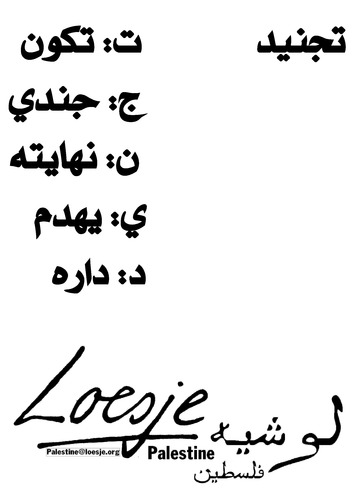 تجنيد
ت: تكون
ج: جندي
ن: نهايته
ي: يهدم
د: داره
Loesje لوشيه
Palestine@loesje.org Palestine فلسطين